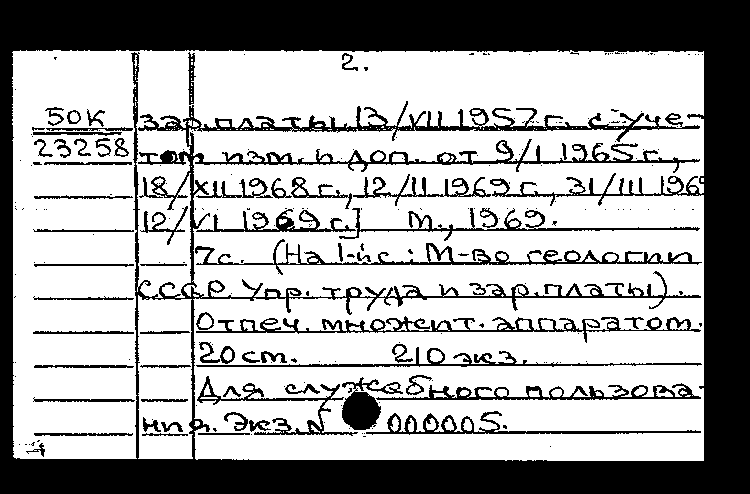 2.
50К
23258
зар.платы. 13/VII 1957г. с уче-
том изм. и доп. от 9/I 1965г.,
18/XII 1968г., 12/II 1969г., 31/III 1969
12/VI 1969г.] М., 1969.
7с. (На 1-й с.: М-во геологии
СССР. Упр. труда и зар.платы).
Отпеч. множит. аппаратом.
20см. 210 экз.
Для служебного пользова-
ния. Экз. № 000005.